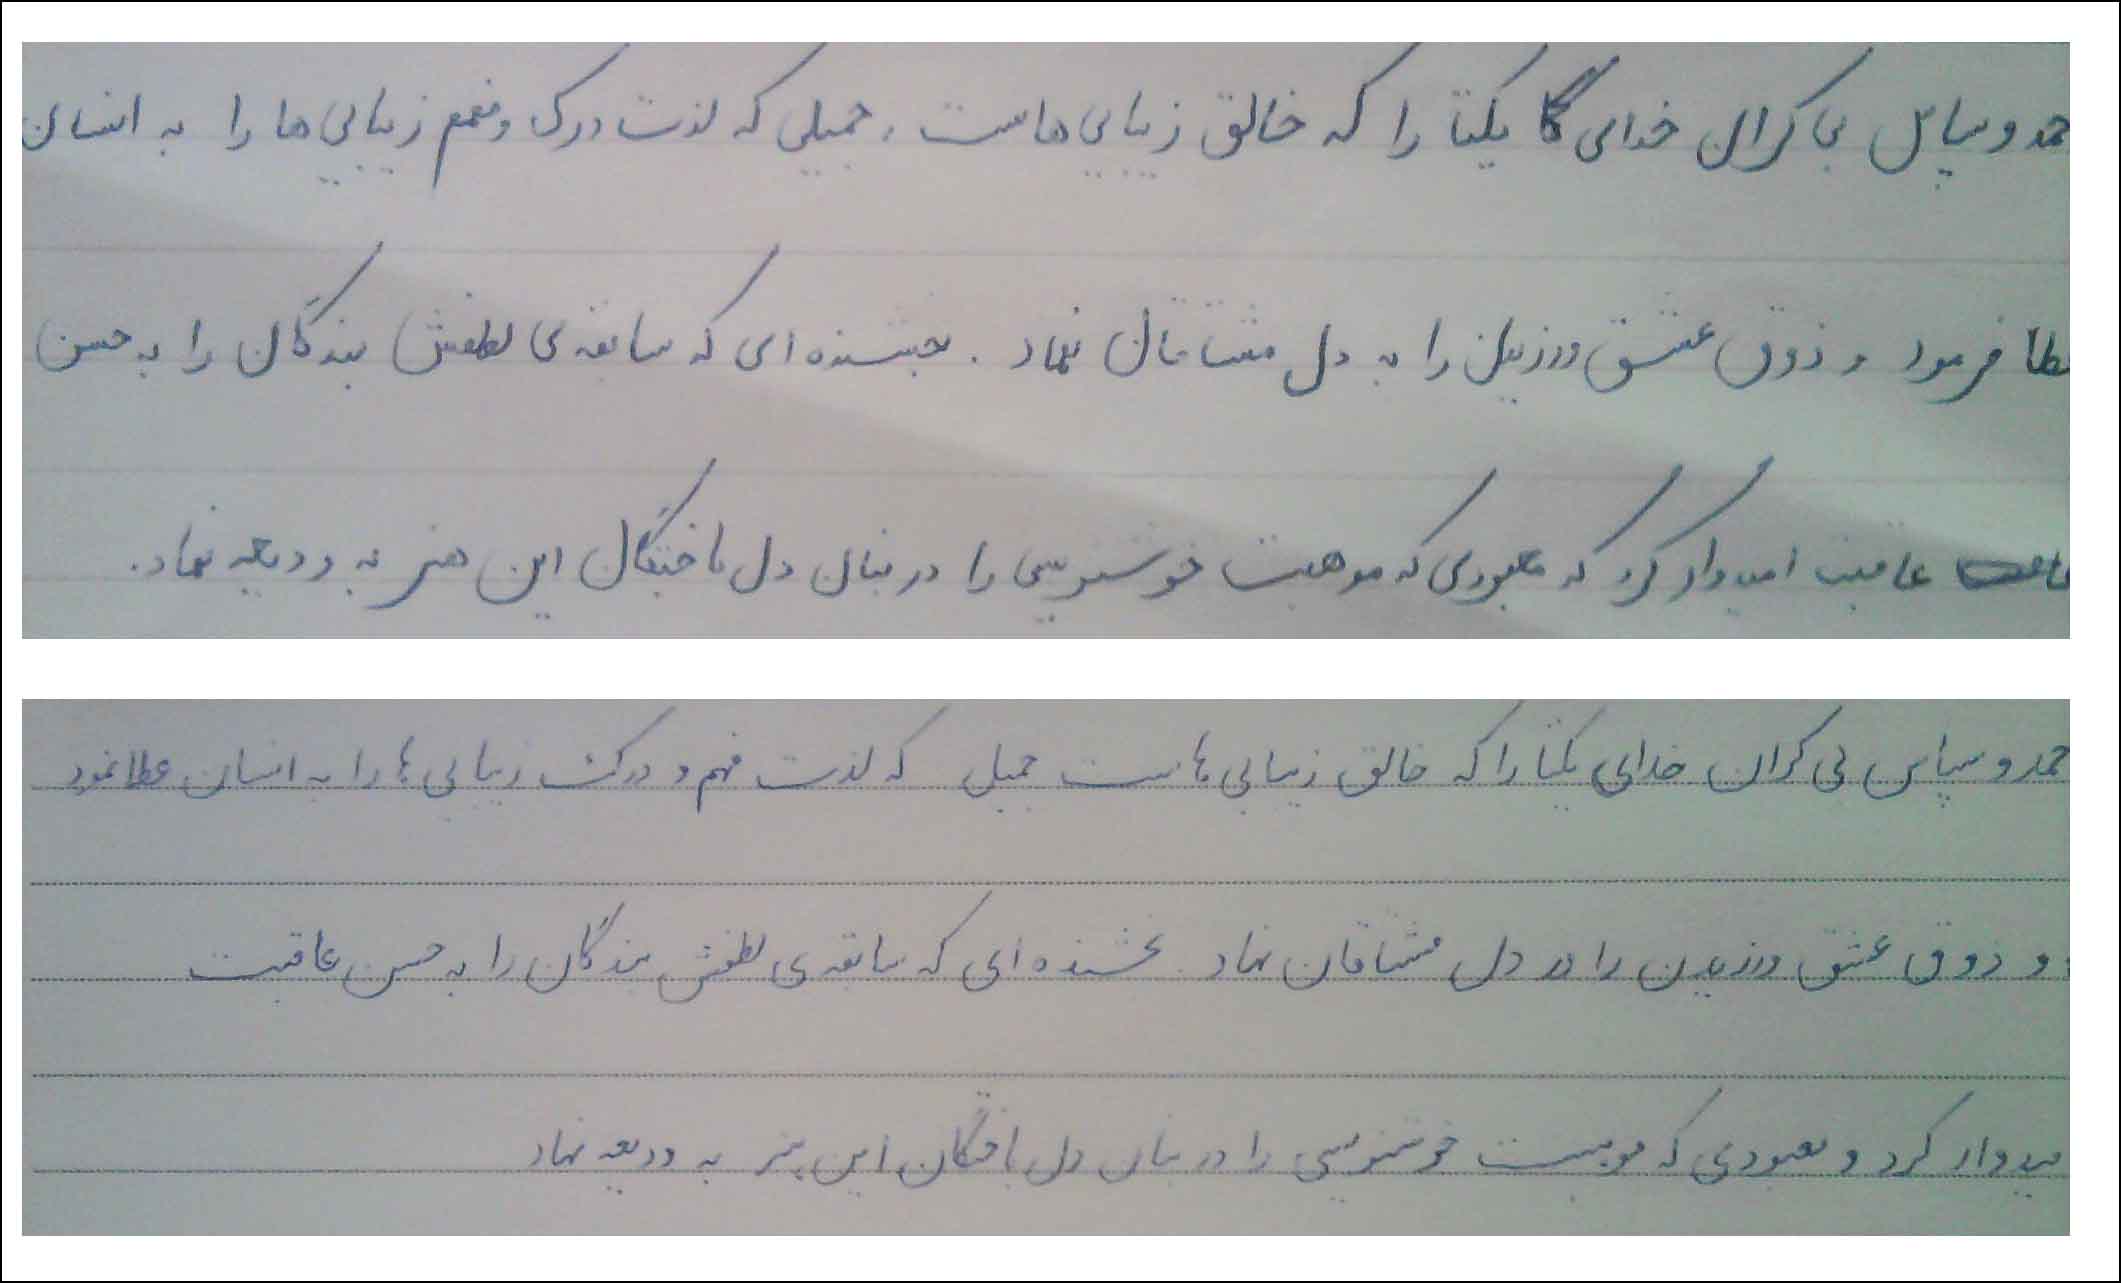 حمد و سپاس بی کران خدای یکتا را که خالق زیبایی هاست ، جمیلی که لذت درک و فهم زیبایی ها را به انسان
عطا فرمود و ذوق عشق ورزیدن را به دل مشتاقان نهاد . بخشنده ای که سابقه ی لطفش بندگان را به حسن
عاقبت امیدوار کرد که معبودی که موهبت خوشنویسی را در بنان دل باختگان این هنر به ودیعه نهاد .
حمد و سپاس بی کران خدای یکتا را که خالق زیبایی هاست جمیل که لذت فهم و درک زیبایی ها را به انسان عطا نمود
و ذوق عشق ورزیدن را در دل مشتاقان نهاد . بخشنده ای که سابقه ی لطفش بندگان را به حسن عاقبت
میدوار کرد و معبودی که موهبت خوشنویسی را در بنان دل باختگان این هنر به ودیعه نهاد